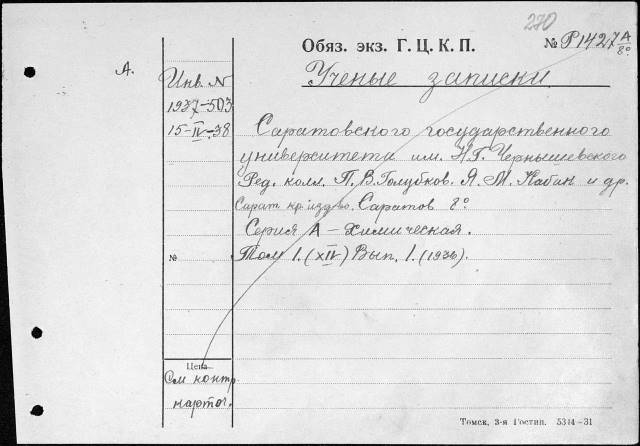 270
Обяз. экз. Г. Ц. К. П. № Р1427 А/8º
А.
Инв. N
1937-503
15-IV-38
Ученые записки
Саратовского государственного
университета им. Н.Г. Чернышевского
Ред. колл. П. В. Голубков. Я. М. Кабин и др.
Сарат. кр. издво. Саратов 8º
Серия А – химическая.
№ Том 1. (XIV) Вып. 1. (1936).
Цена
См контр.
карточ.
Томск, 3-я Гостип. 5314-31